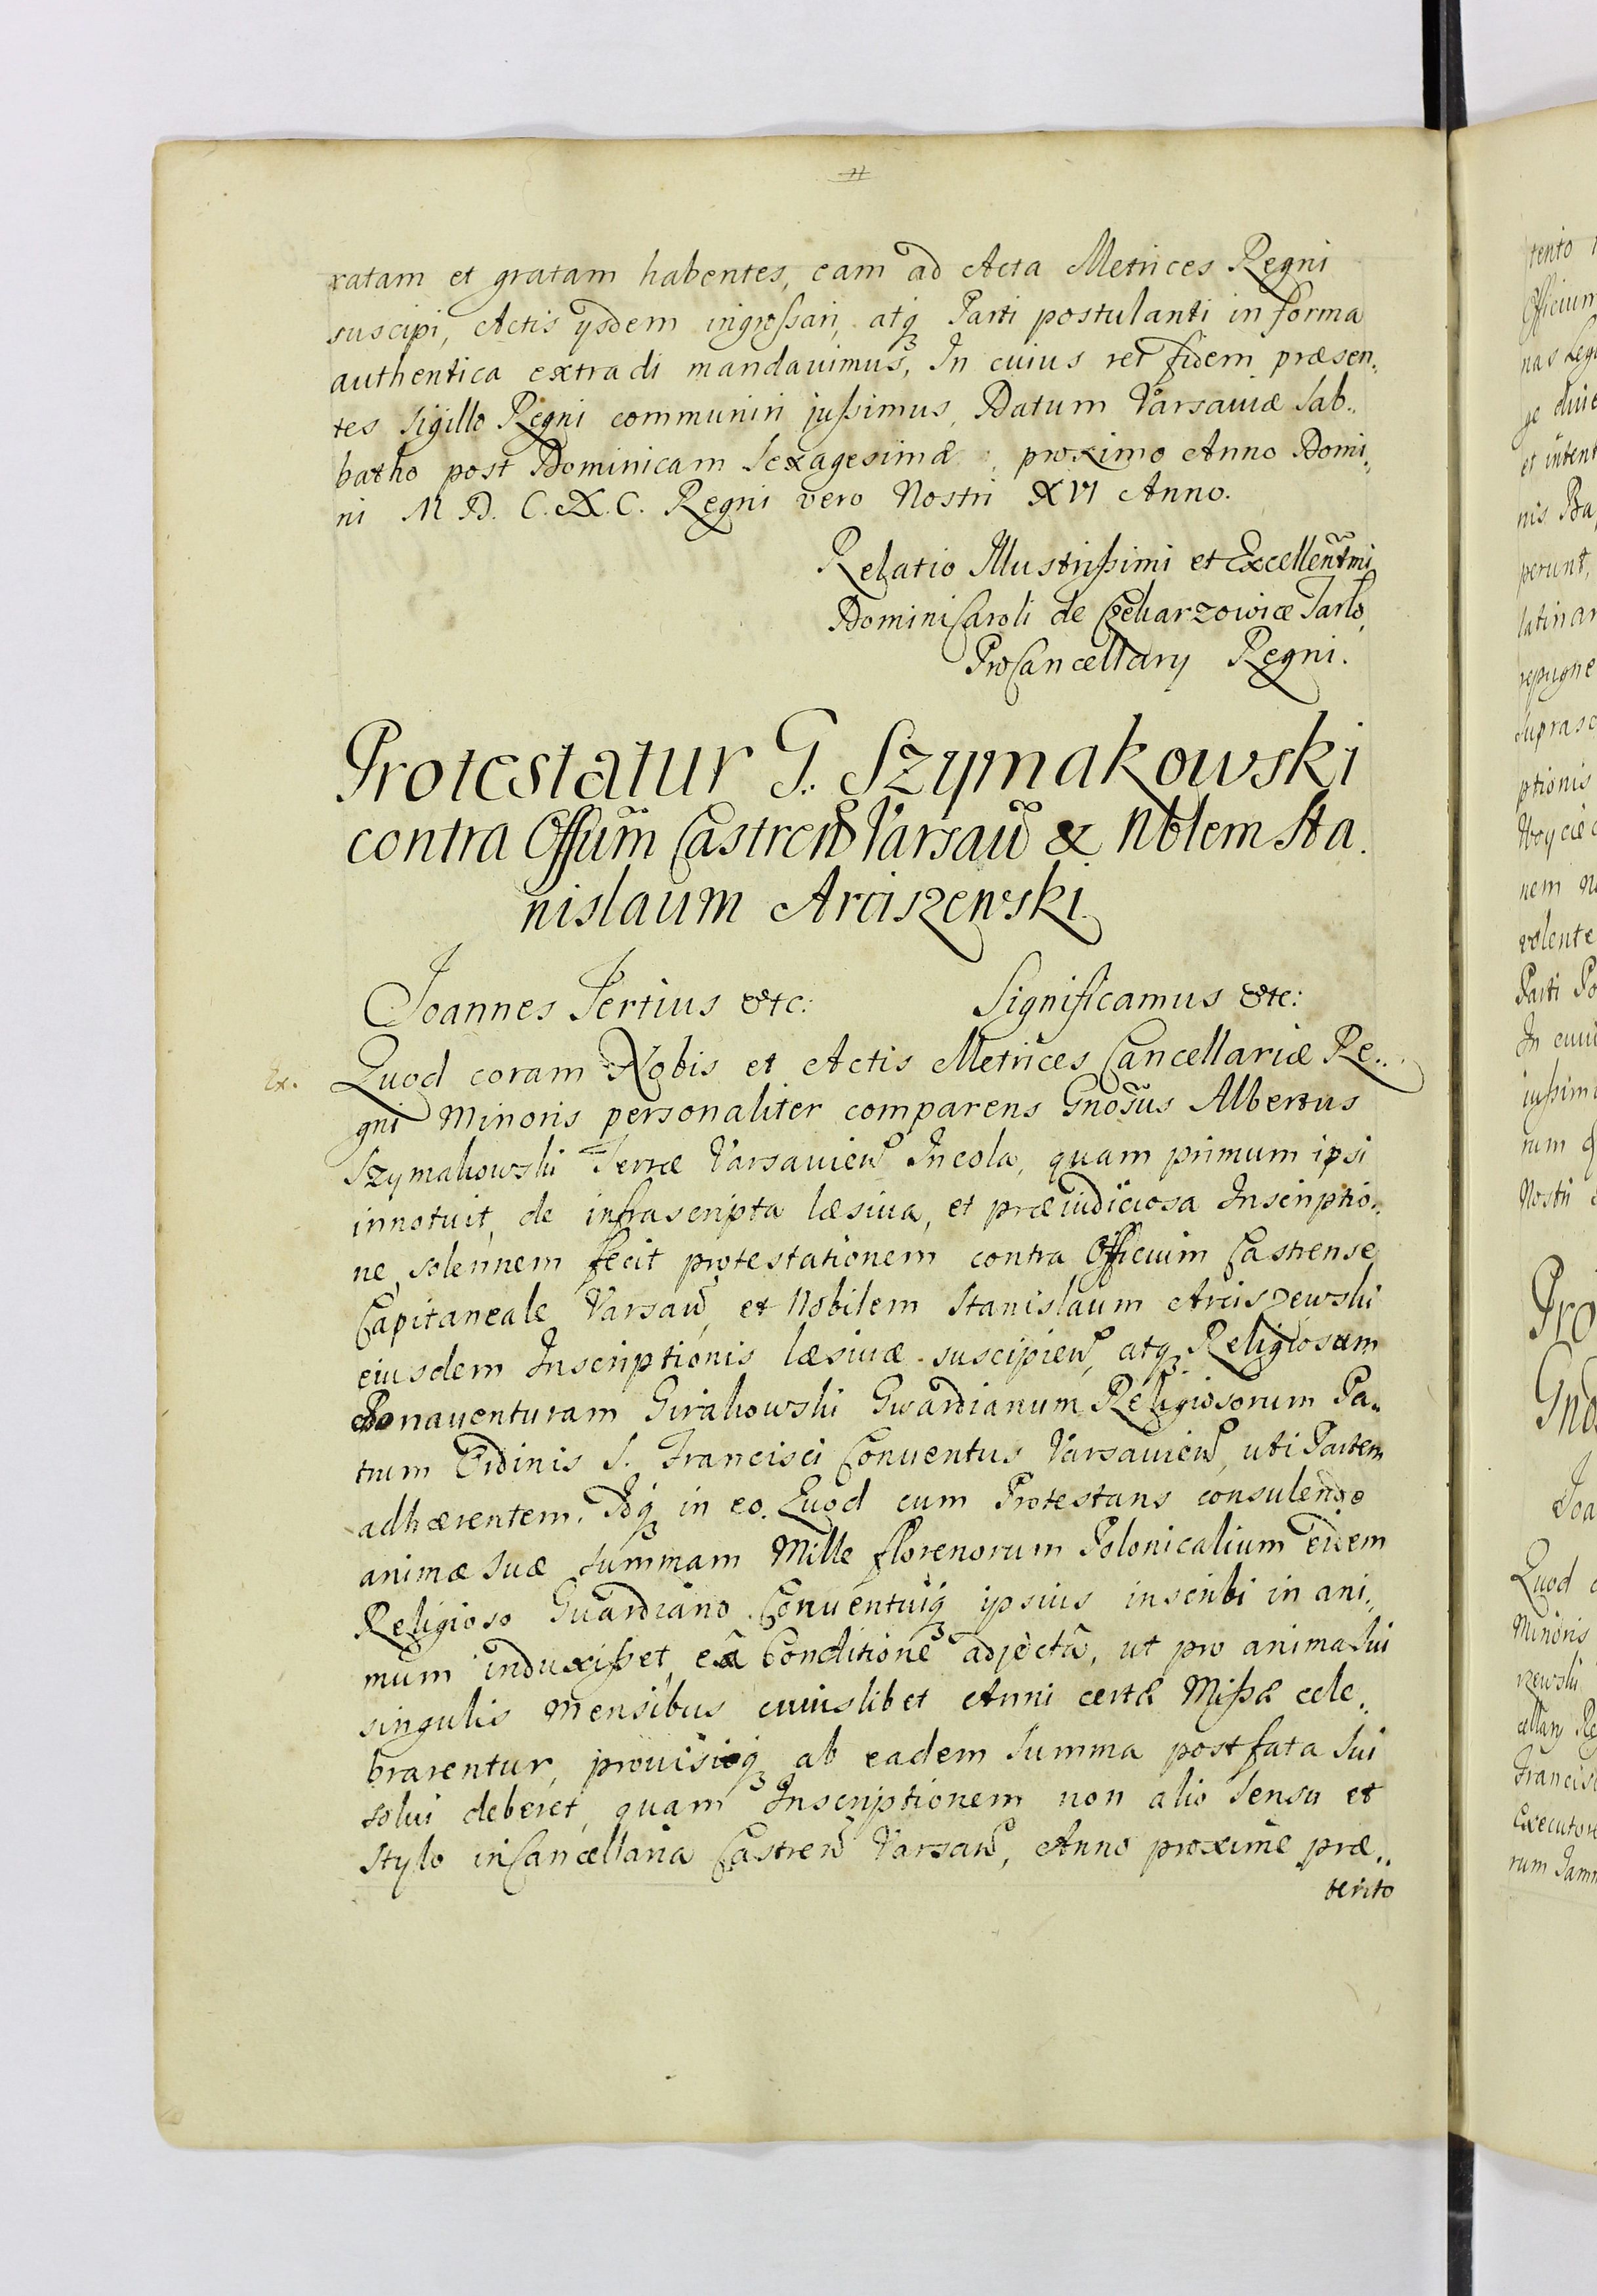 ratam et gratam habentes, eam ad Acta Metrices Regni
suscipi, Actis ijsdem ingroſsari, atq3 Parti postulanti in forma
authentica extradi mandauimus, In cuius rei fidem præsen„
tes Sigillo Regni communiri juſsimus, Datum Varsauiæ Sab„
batho post Dominicam Sexagesimæ proximo Anno Domi„
ni M D. C. X. C. Regni vero Nostri XVI Anno.
Relatio Illustriſsimi et Excellent̃mi
Domini Caroli de Czekarzowice Tarło,
ProCancellarij Regni.
Protestatur G. Szymakowski
contra Offũm Castren̄ Varsau̅ & Nblem Sta
nislaum Arciszewski
Joannes Tertius etc: Significamus etc:
Ex. Quod coram Nobis et Actis Metrices Cancellariæ Re„
gni Minoris personaliter comparens Gnosus Albertus
Szymakowski Terræ Varsauien̄ Incola, quam primum ipsi
innotuit, de infrascripta læsiua, et præiudiciosa Inscriptio„
ne, solennem fecit protestationem contra Officium Castrense
Capitaneale Varsau̅, et Nobilem Stanislaum Arciszewski
eiusdem Inscriptionis læsiuæ suscipien̄, atq3 Religiosum
Bonauenturam Girakowski Gwardianum Religiosorum Pa„
trum Ordinis S. Francisci Conuentus Varsauien̄, uti Partem
adhærentem. Idq3 in eo. Quod cum Protestans consulendo
animæ suæ summam Mille florenorum Polonicalium eidem
Religioso Guardiano Conuentuiq3 ipsius inscribi in ani„
mum induxiſset, eâ Conditione adjectâ, ut pro anima Sui
singulis Mensibus cuiuslibet Anni certæ Miſsæ cele„
brarentur, prouisioq3 ab eadem Summa post fata Sui
solui deberet, quam Inscriptionem non alio Sensu et
Stylo in Cancellaria Castren̄ Varsau̅, Anno proxime præ„
terito